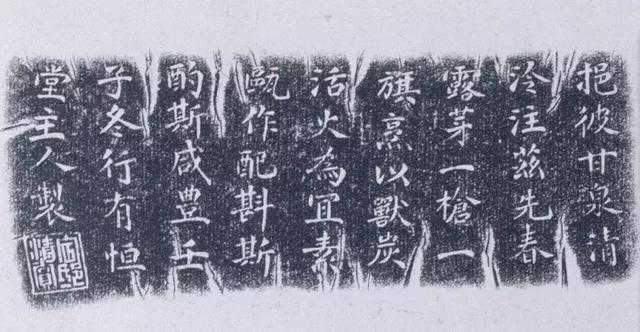 挹彼甘泉清
泠注茲先春
露芽一槍一
旗烹以獸炭
活火為宜素
甌作配斟斯
酌斯咸豊壬
子冬行有恒
堂主人製